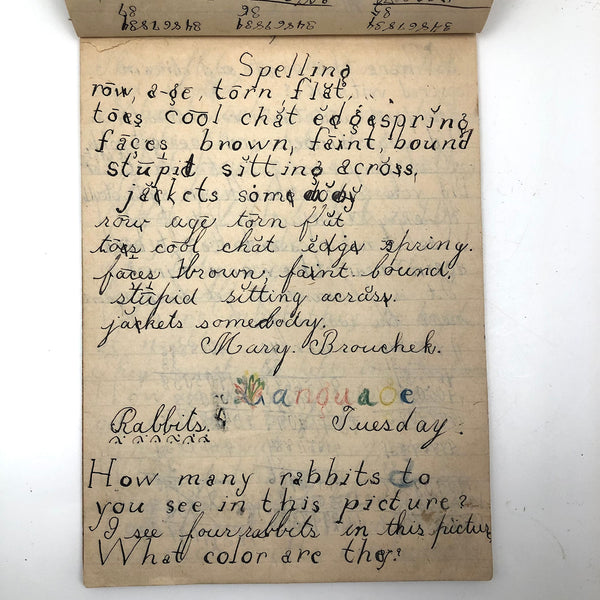 34867834 34867834 34867834
87 36 87
Spelling
rōw, a-ge, tōrn, flăt,
tōes cool chăt ĕdge spring
fāces brown, fāint, bound
stūpid sĭtting across,
jăckets some body
rōw age tōrn flăt
tōes cool chăt ĕdge spring.
fāces brown, fāint bound.
stūpid sĭtting across.
jackets somebody.
Mary. Brouchek.
Language
Rabbits. Tuesday.
How many rabbits do
you see in this picture?
I see four rabbits in this picture
What color are they?